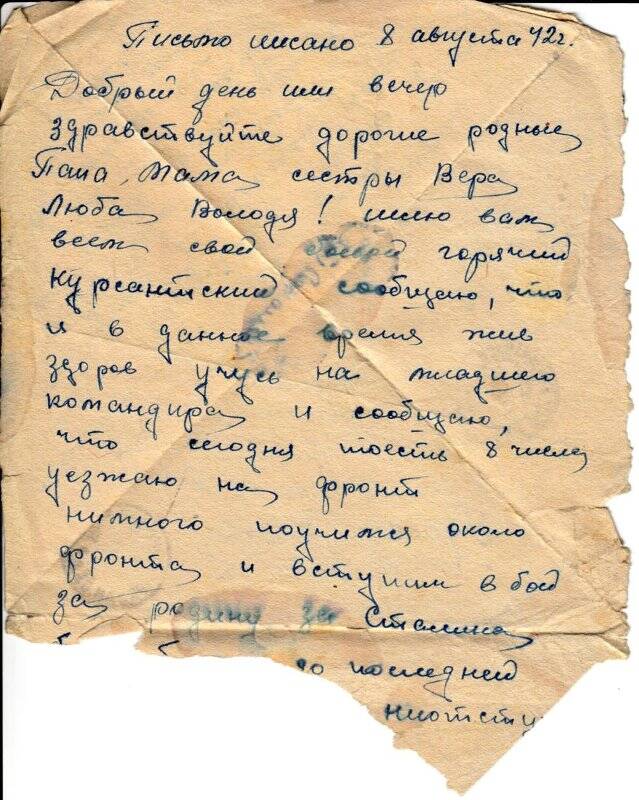 Письмо писано 8 августа 42 г.
Добрый день или вечер
здравствуйте дорогие родные
Папа, Мама сестры Вера
Люба Володя! шлю вам
всем свой горячий
курсантский сообщаю, что
я в данное время жив
здоров учусь на младшего
командира и сообщаю,
что сегодня тоесть 8 числа
уезжаю на фронт
нимного поучимся около
фронта и вступим в бой
за родину за Сталина
до последней
ниотсту